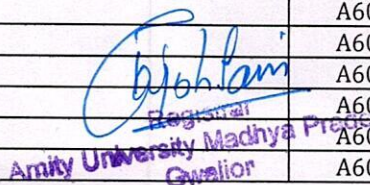 A60
A60
A60
A60
Registrar
A60
Amity University Madhya Prade
A60
Gwalior